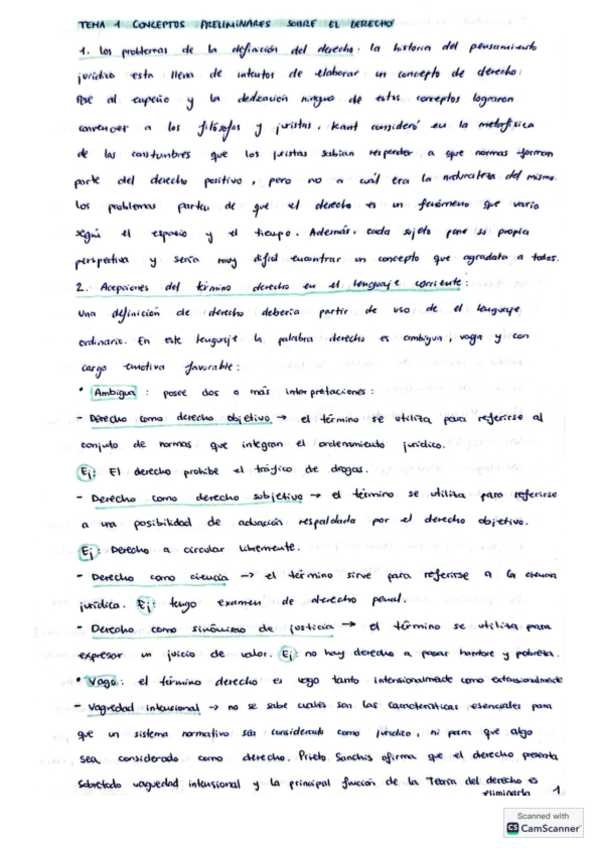 TEMA 1 CONCEPTOS PRELIMINARES SOBRE EL DERECHO
1. Los problemas de la definición del derecho: la historia del pensamiento
jurídico esta llena de intentos de elaborar un concepto de derecho.
Pese al empeño y la dedicación ninguno de estos conceptos lograron
convencer a los filósofos y juristas. Kant consideró en la metafísica
de las costumbres que los juristas sabían responder a que normas forman
parte del derecho positivo, pero no a cuál era la naturaleza del mismo.
Los problemas parten de que el derecho es un fenómeno que varía
según el espacio y el tiempo. Además, cada sujeto pone su propia
perspectiva y sería muy difícil encontrar un concepto que agradara a todos.
2. Acepciones del término derecho en el lenguaje corriente:
Una definición de derecho debería partir de uso de el lenguaje
ordinario. En este lenguaje la palabra derecho es ambigua, vaga y con
carga emotiva favorable:
• Ambigua: posee dos o más interpretaciones:
- Derecho como derecho objetivo → el término se utiliza para referirse al
conjuto de normas que integran el ordenamiento jurídico.
Ej: El derecho prohibe el tráfico de drogas.
- Derecho como derecho subjetivo → el término se utiliza para referirse
a una posibilidad de actuación respaldada por el derecho objetivo.
Ej: Derecho a circular libremente.
- Derecho como ciencia → el término sirve para referirse a la ciencia
jurídica. Ej: tengo examen de derecho penal.
- Derecho como sinónimo de justicia → el término se utiliza para
expresar un juicio de valor. Ej: no hay derecho a pasar hambre y pobreza.
• Vago: el término derecho es vago tanto intensionalmente como extensionalmente
- Vagredad intensional → no se sabe cuales son las características esenciales para
que un sistema normativo sea considerado como jurídico, ni para que algo
sea considerado como derecho. Prieto Sanchis afirma que el derecho presenta
sobretodo vaguedad intensional y la principal función de la Teoría del derecho es
eliminarla
1
Scanned with
CS CamScanner